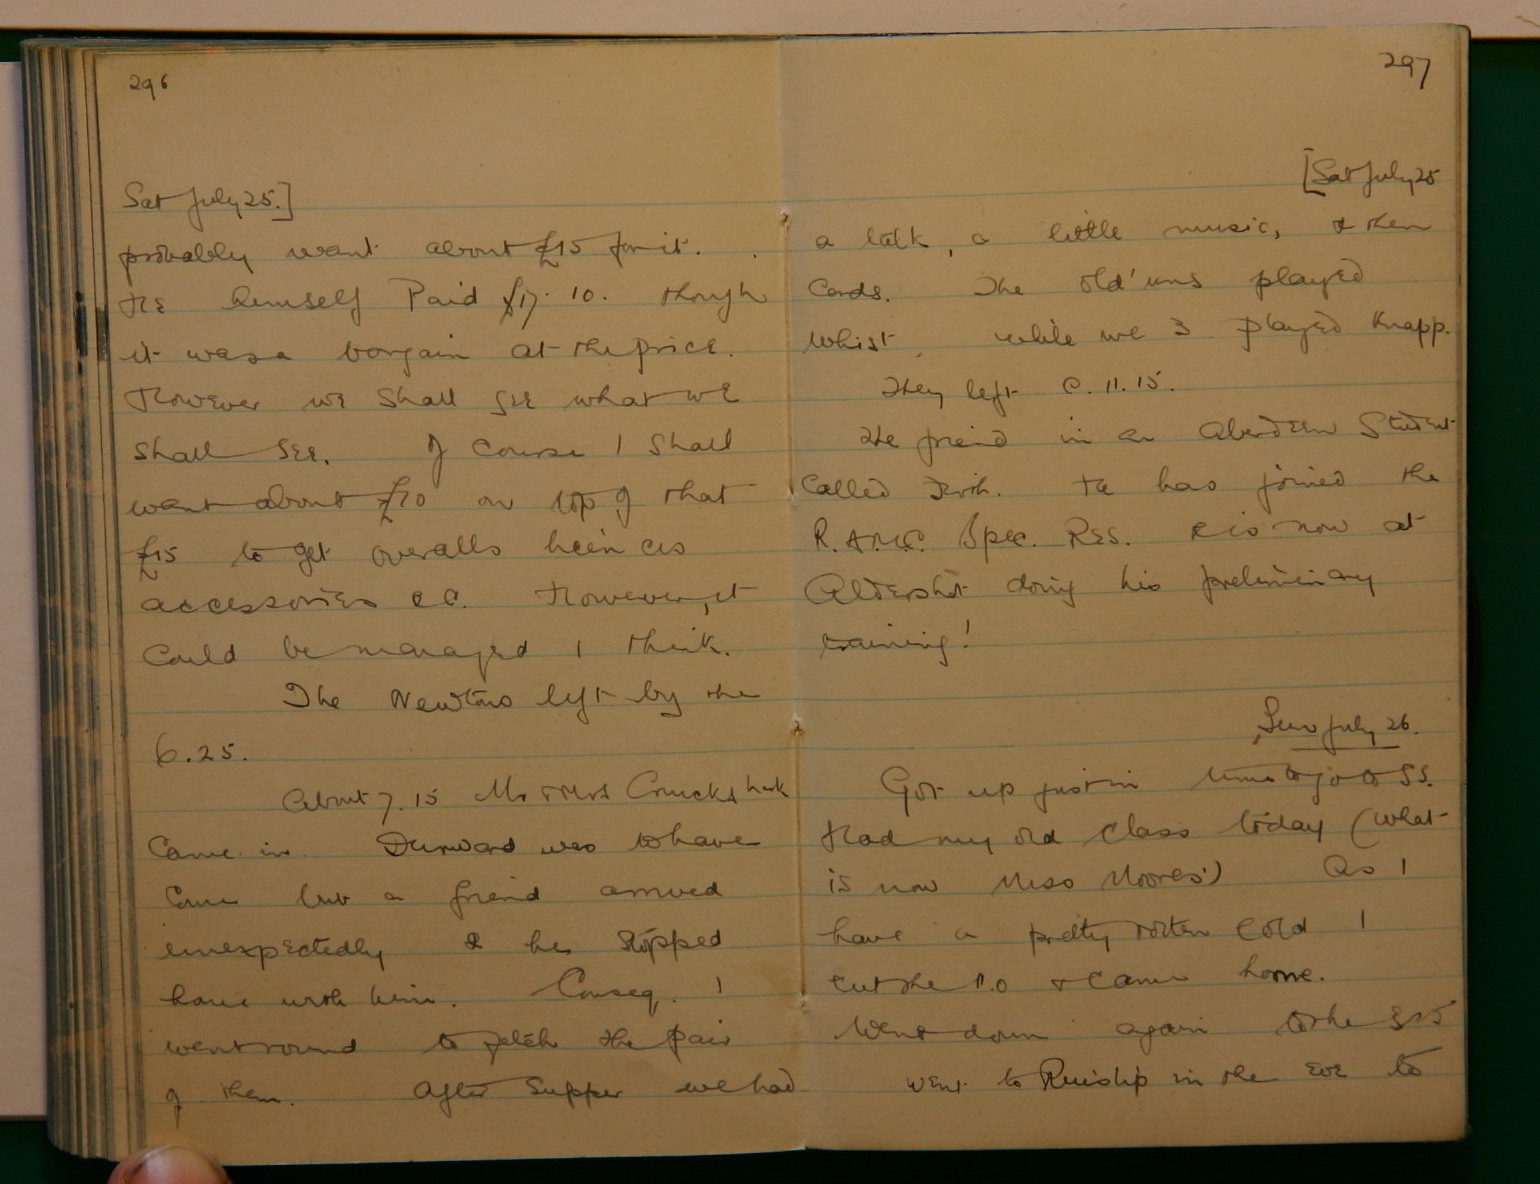 296
Sat July 25.]
probably want about £15 for it.
He himself Paid £17. 10. though
it was a bargain at the price.
However we shall see what we
shall see. Of course I shall
want about £10 on top of that
£15 to get overalls licences
accessories &c. However, it
could be managed I think.
The Newtons left by the
6.25.
About 7.15 Mr & Mrs Cruckshank
came in. Durward was to have
come but a friend arrived
unexpectedly & he stopped
home with him. Conseq. I
went round to fetch the pair
of them. After supper we had
297
[Sat July 25
a talk, a little music, & then
cards. The old'uns played
whist, while we 3 played Knapp.
They left c. 11.15.
The friend is an Aberdeen Student
called . He has joined the
R.A.M.C. Spec. Res. & is now at
Aldershot doing his preliminary
training!
Sun July 26.
Got up just in time to go to SS.
Had my old class today (what
is now Miss Moores') As I
have a pretty rotten cold I
cut the & came home.
Went down again to the 3.15
Went to Ruislip in the eve to